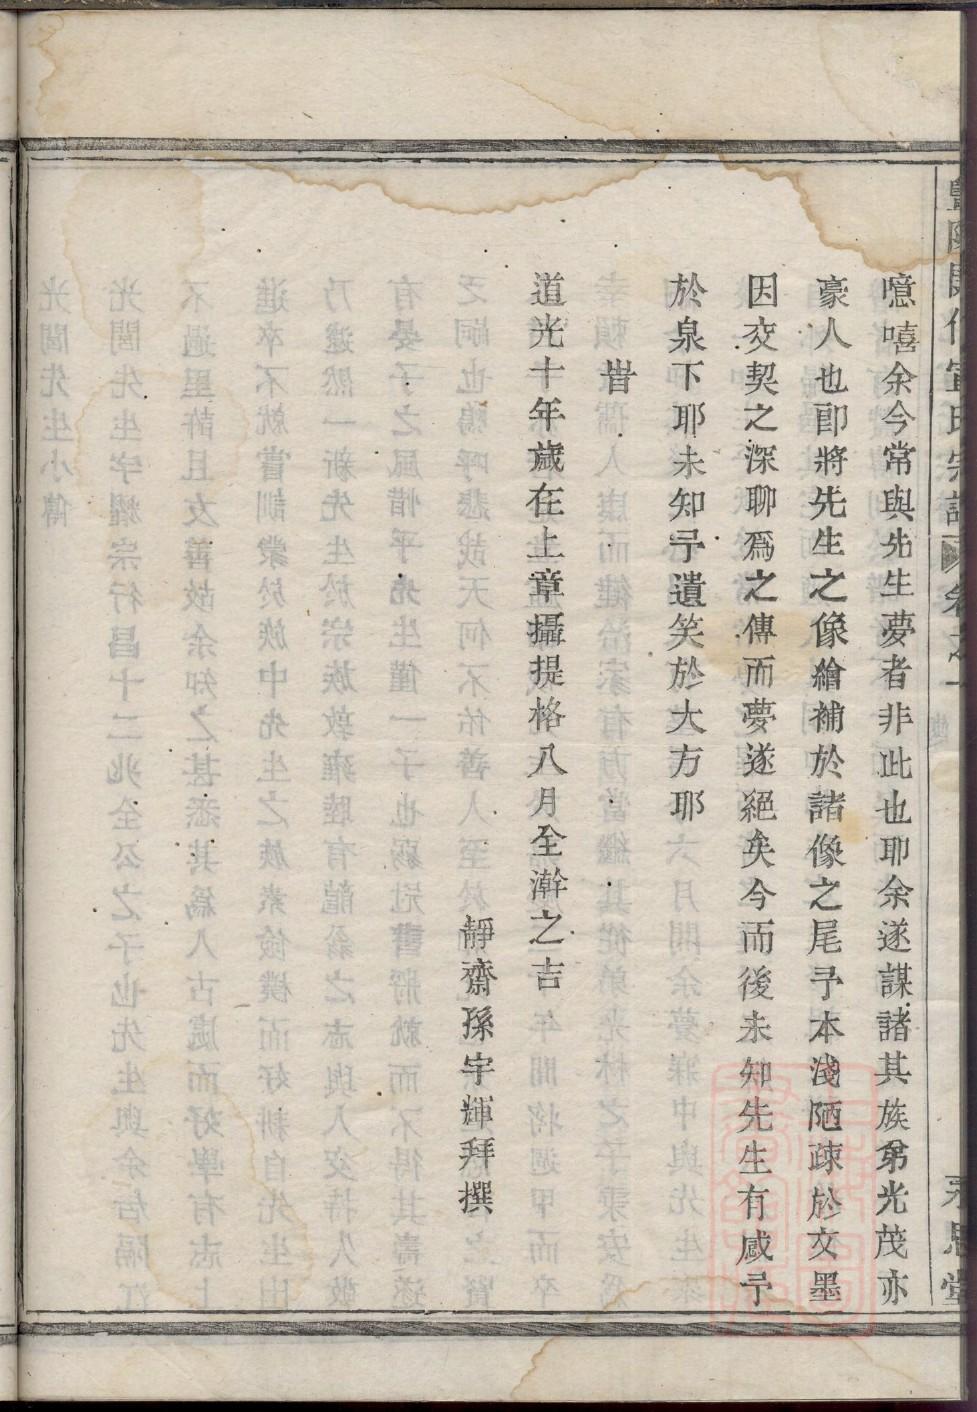 噫嘻余今常與先生夢者非此也耶余遂謀諸其族弟光茂亦
豪人也卽將先生之像繪補於諸像之尾予本淺陋疎於文墨
因交契之深聊爲之傳而夢遂絕矣今而後未知先生有感予
於泉下耶未知予遺笑於大方耶
旹
道光十年歲在上章攝提格八月全澣之吉
靜齋孫宇輝拜撰